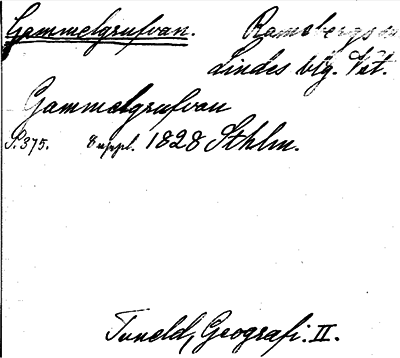 Gammelgrufvan. Ramsbergs sn
Lindes blg. Vst.
Gammelgrufvan
S. 375. Suppl. 1828 Sthlm.
Tuneld, Geografi. II.